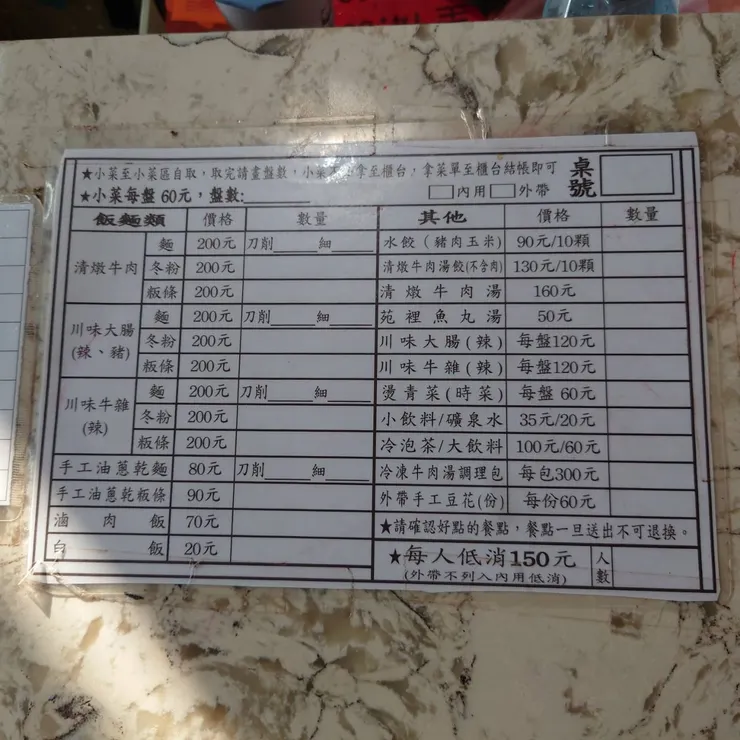 ★小菜至小菜區自取，取完請畫盤數，小菜拿至櫃台，拿菜單至櫃台結帳即可
★小菜每盤 60元，盤數:
□內用 □外帶
桌號
飯麵類 價格 數量
清燉牛肉 麵 200元 刀削____細____
冬粉 200元
粄條 200元
川味大腸(辣、豬) 麵 200元 刀削____細____
冬粉 200元
粄條 200元
川味牛雜(辣) 麵 200元 刀削____細____
冬粉 200元
粄條 200元
手工油蔥乾麵 80元 刀削____細____
手工油蔥乾粄條 90元
滷肉飯 70元
白飯 20元
其他 價格 數量
水餃（豬肉玉米） 90元/10顆
清燉牛肉湯餃(不含肉) 130元/10顆
清燉牛肉湯 160元
苑裡魚丸湯 50元
川味大腸(辣) 每盤120元
川味牛雜(辣) 每盤120元
燙青菜(時菜) 每盤 60元
小飲料/礦泉水 35元/20元
冷泡茶/大飲料 100元/60元
冷凍牛肉湯調理包 每包300元
外帶手工豆花(份) 每份60元
★請確認好點的餐點，餐點一旦送出不可退換。
★每人低消150元
(外帶不列入內用低消)
人數